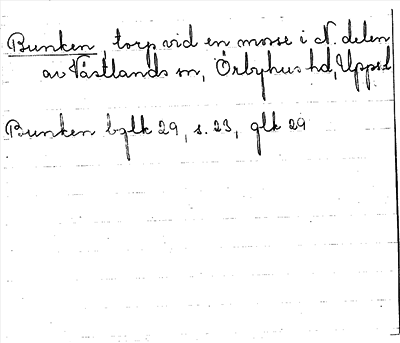 Bunken, torp vid en mosse i N. delen
av Västlands sn, Örbyhus hd, Upps.l
Bunken bglk 29, s. 23, glk 29